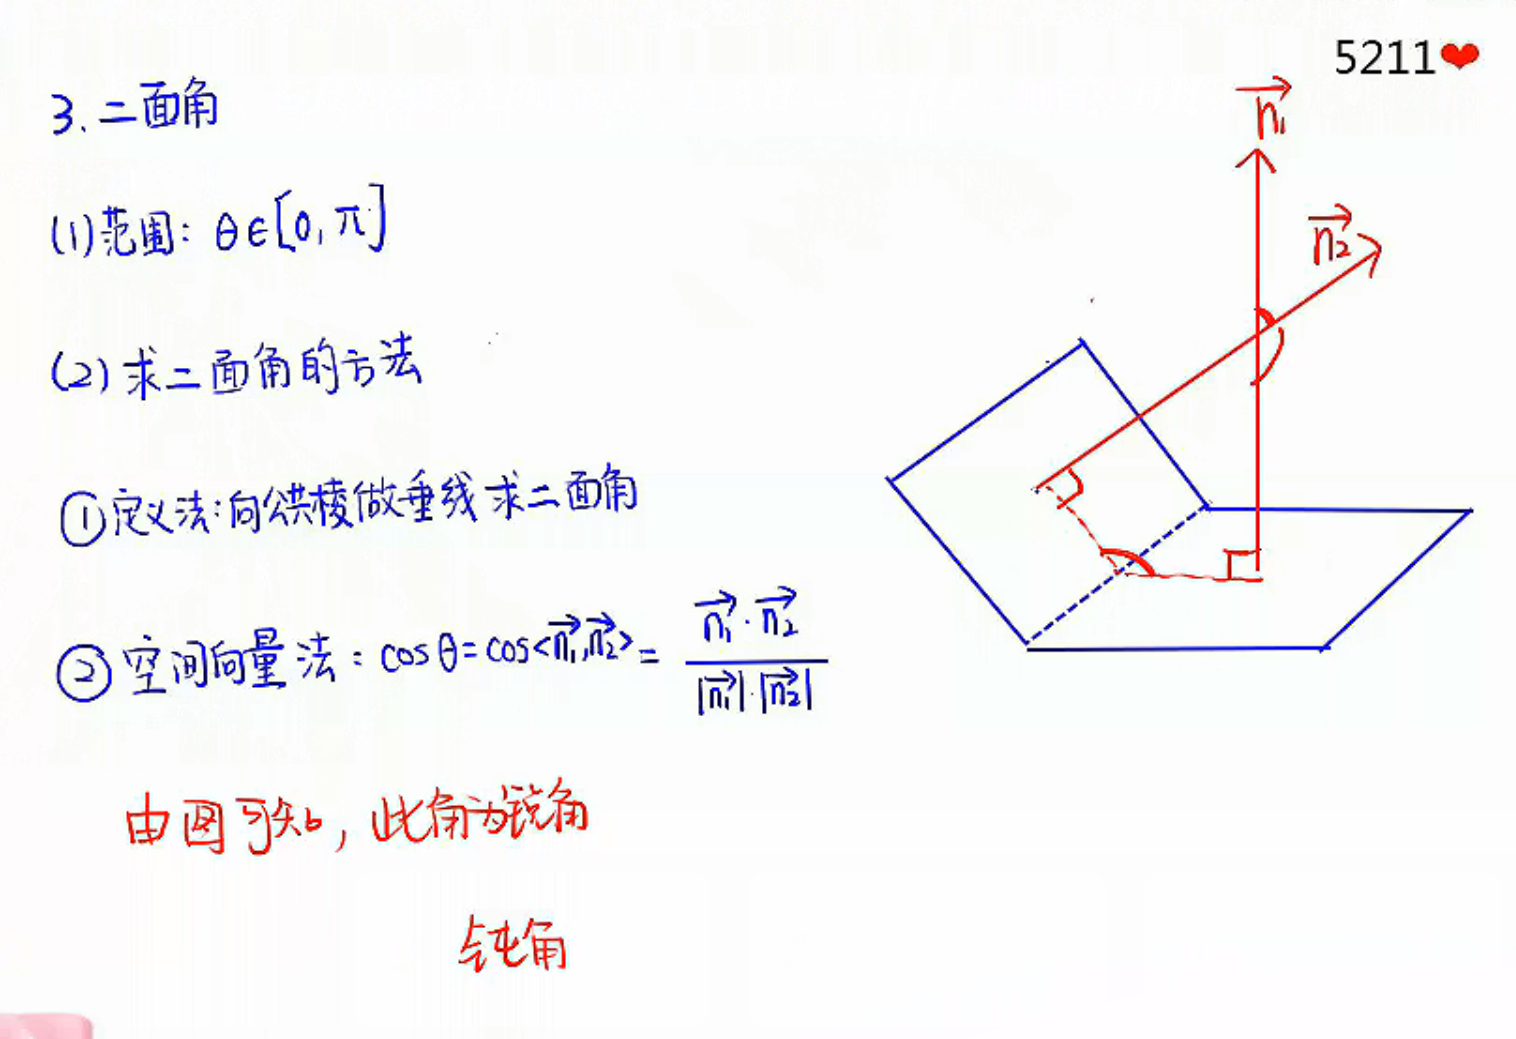 5211❤
3. 二面角
(1) 范围: θ∈[0, π]
(2) 求二面角的方法
① 定义法: 向公共棱做垂线求二面角
② 空间向量法: cosθ = cos<n₁⃗,n₂⃗> = n₁⃗·n₂⃗ / |n₁⃗|·|n₂⃗|
由图可知, 此角为锐角
钝角
n₁⃗
n₂⃗